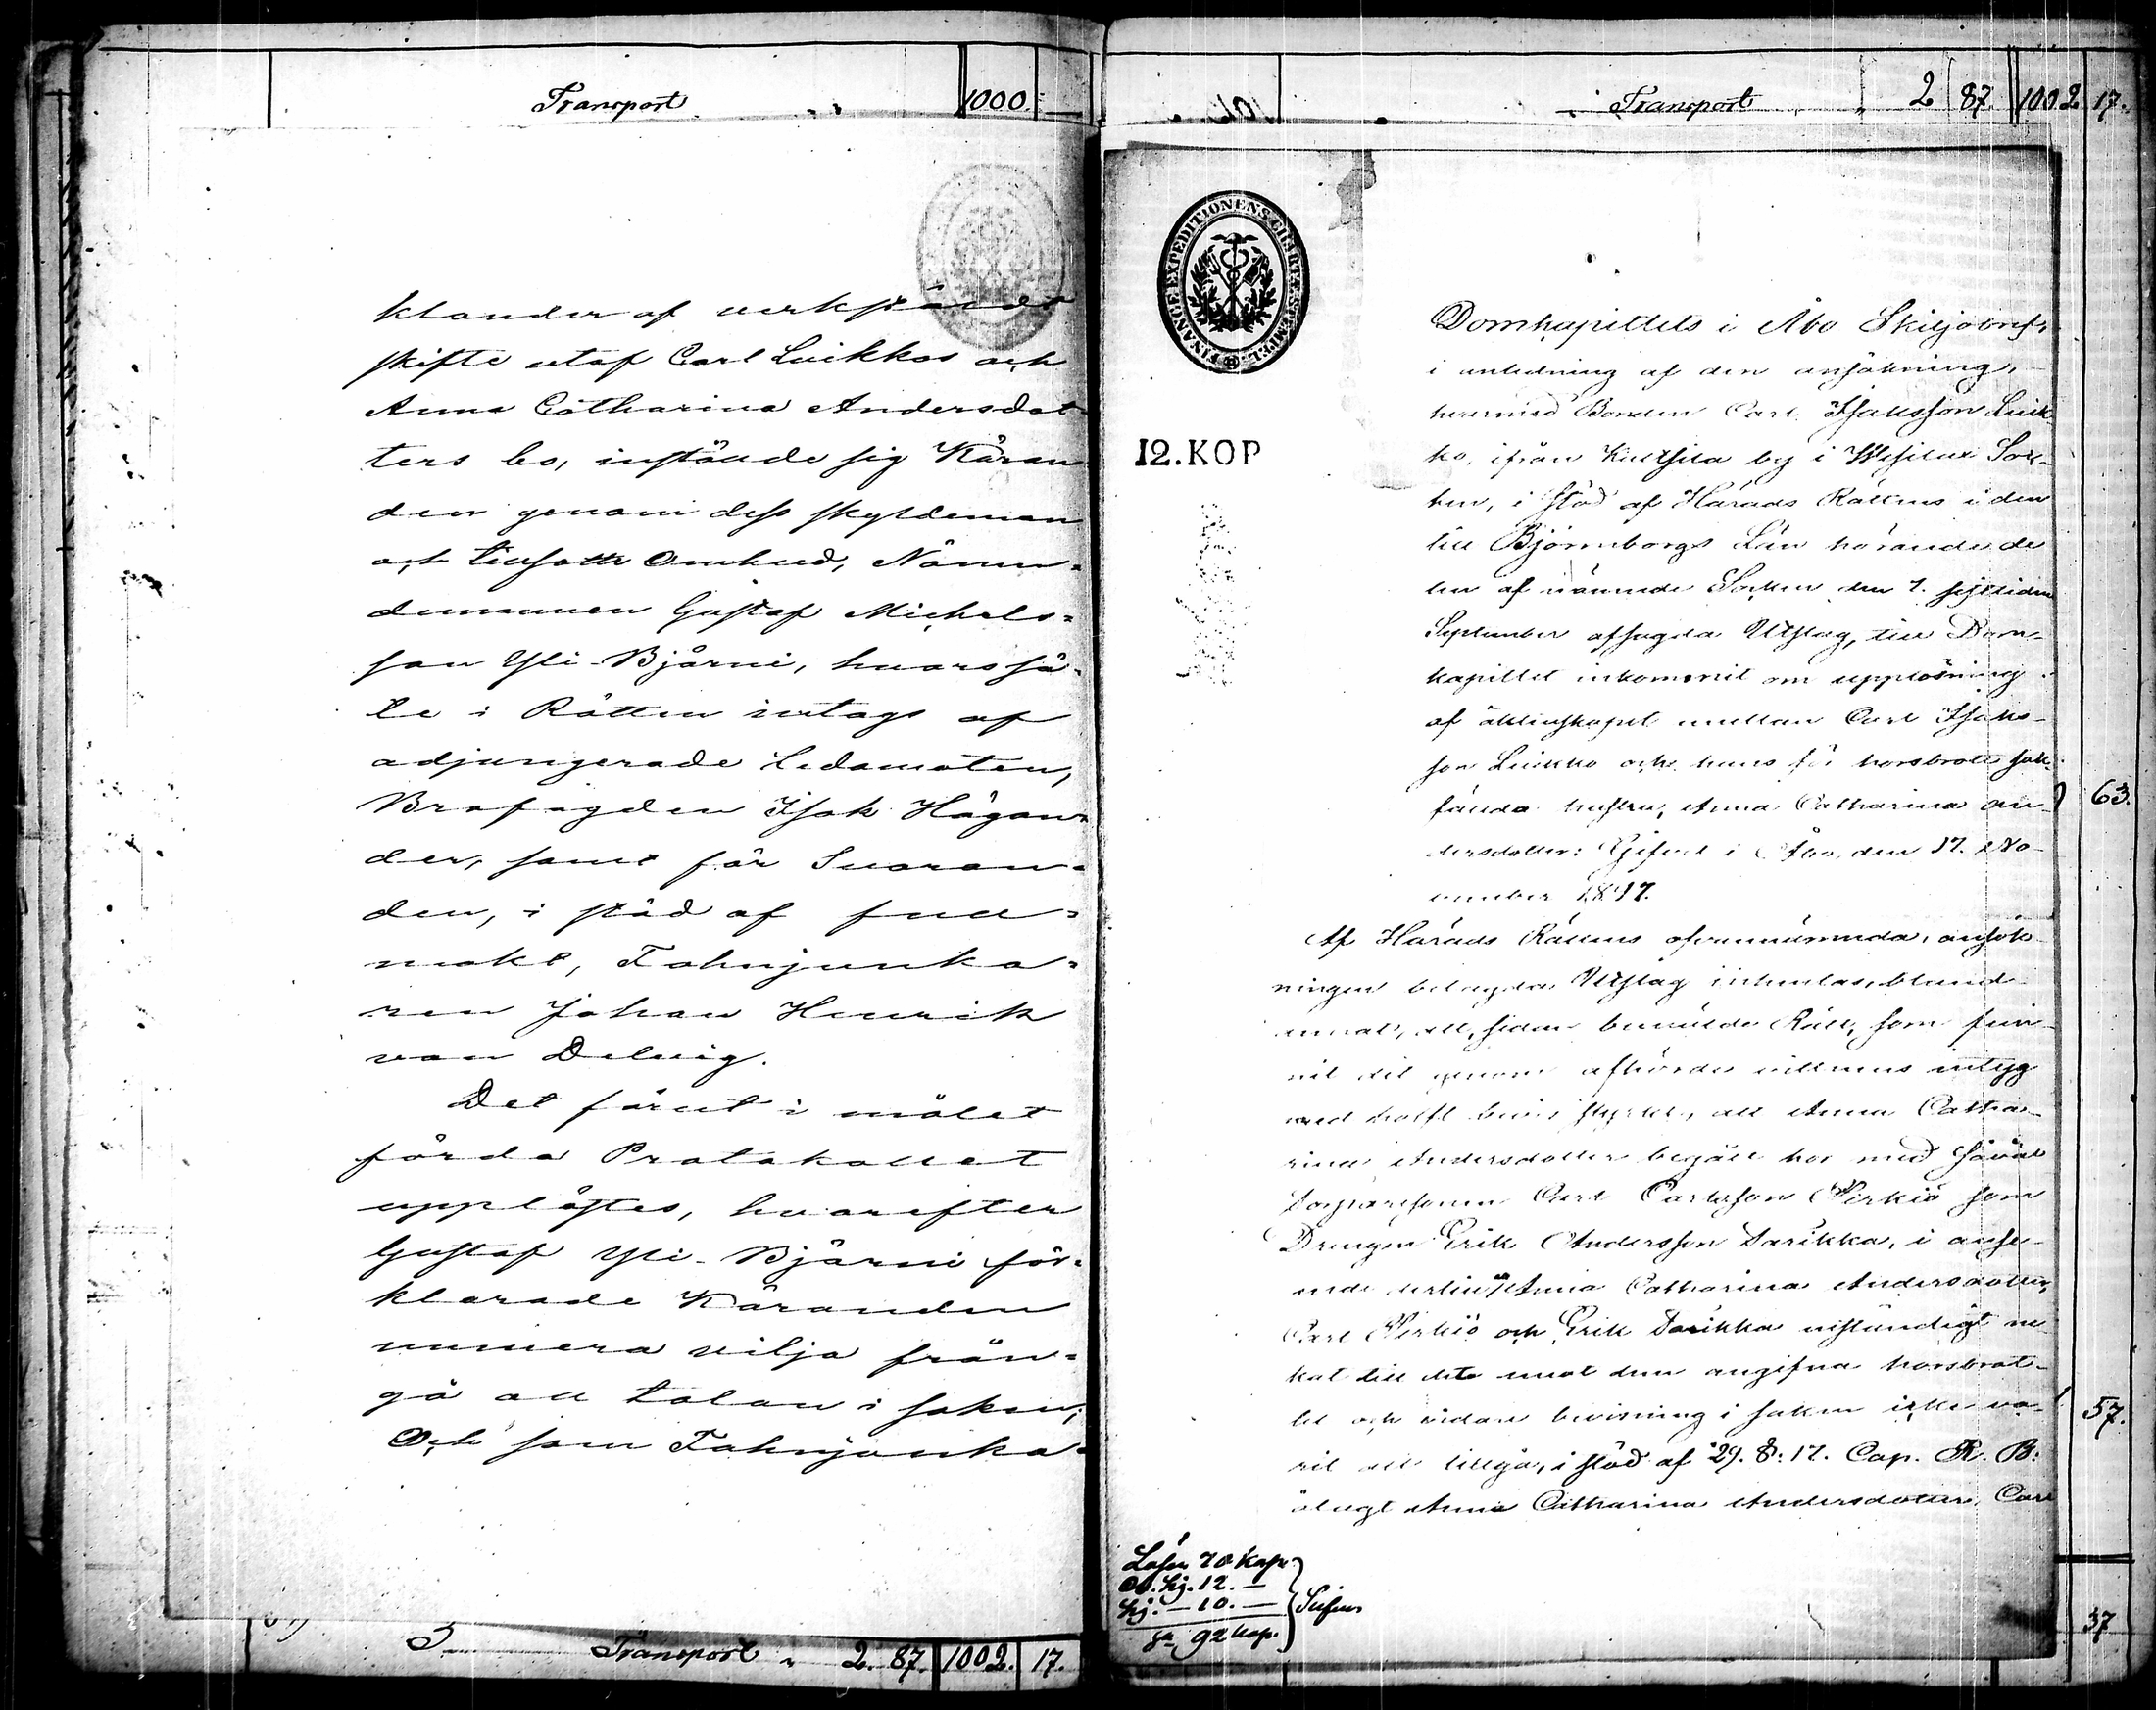 Transport 1000.
klander af verkstäldt
skifte utaf Carl Luikkos och
Anna Catharina Andersdot-
ters bo, instälde sig Käran-
den genom dess skyldeman
och tillsatte Ombud, Nämn-
demannen Gustaf Michels-
son Yli-Bjärni, hvars stäl-
le i Rätten intogs af
adjungerade Ledamoten,
Brofogden Isak Hägan-
der, samt för Svaran-
den, i stöd af full-
makt, Fahnjunka-
ren Johan Henrik
von Delvig.
Det förut i målet
förda Protokollet
upplästes, hvarefter
Gustaf Yli-Bjärni för-
klarade Käranden
numera vilja från-
gå all talan i saken;
Och som Fahnjunka-
Transport 2. 87. 1002. 17.
Transport 2 87. 1002 17.
FINANCE EXPEDITIONENS CHARTÆ STEMPEL
12. KOP
Domkapitlets i Åbo Skiljobref,
i anledning af den ansökning,
hvarmed Bonden Carl Isaksson Luik-
ko, ifrån by i Sock-
nen, i stöd af Härads Rättens i den
till Björneborgs Län hörande de-
len af nämnde Socken den 7. sistlidne
September afsagda Utslag, till Dom-
kapitlet inkommit om upplösning
af äktenskapet mellan Carl Isaks-
son Luikko och hans för horsbrott sak-
fällda hustru, Anna Catharina An-
dersdotter: Gifvet i Åbo, den 17. No-
vember 1847.
63.
Af Härads Rättens ofvannämnda, ansök-
ningen bilagda Utslag inhemtas, bland
annat, att, sedan bemälde Rätt, som fun-
nit det genom afhörde vittnens intyg
med halft bevis styrkt, att Anna Catha-
rina Andersdotter begått hor med såväl
Carl Carlsson som
Drengen Erik Andersson Sarikka, i anse-
ende dertill att Anna Catharina Andersdotter,
Carl och Erik Sarikka enständigt ne-
kat till det emot dem angifna horsbrot-
tet och vidare bevisning i saken icke va-
rit att tillgå, i stöd af 29. §. 17. Cap. R. B.
ålagt Anna Catharina Andersdotter, Carl
57.
37
Lösen 70 kop.
12. —
— 10. —
Sa 92 kop.